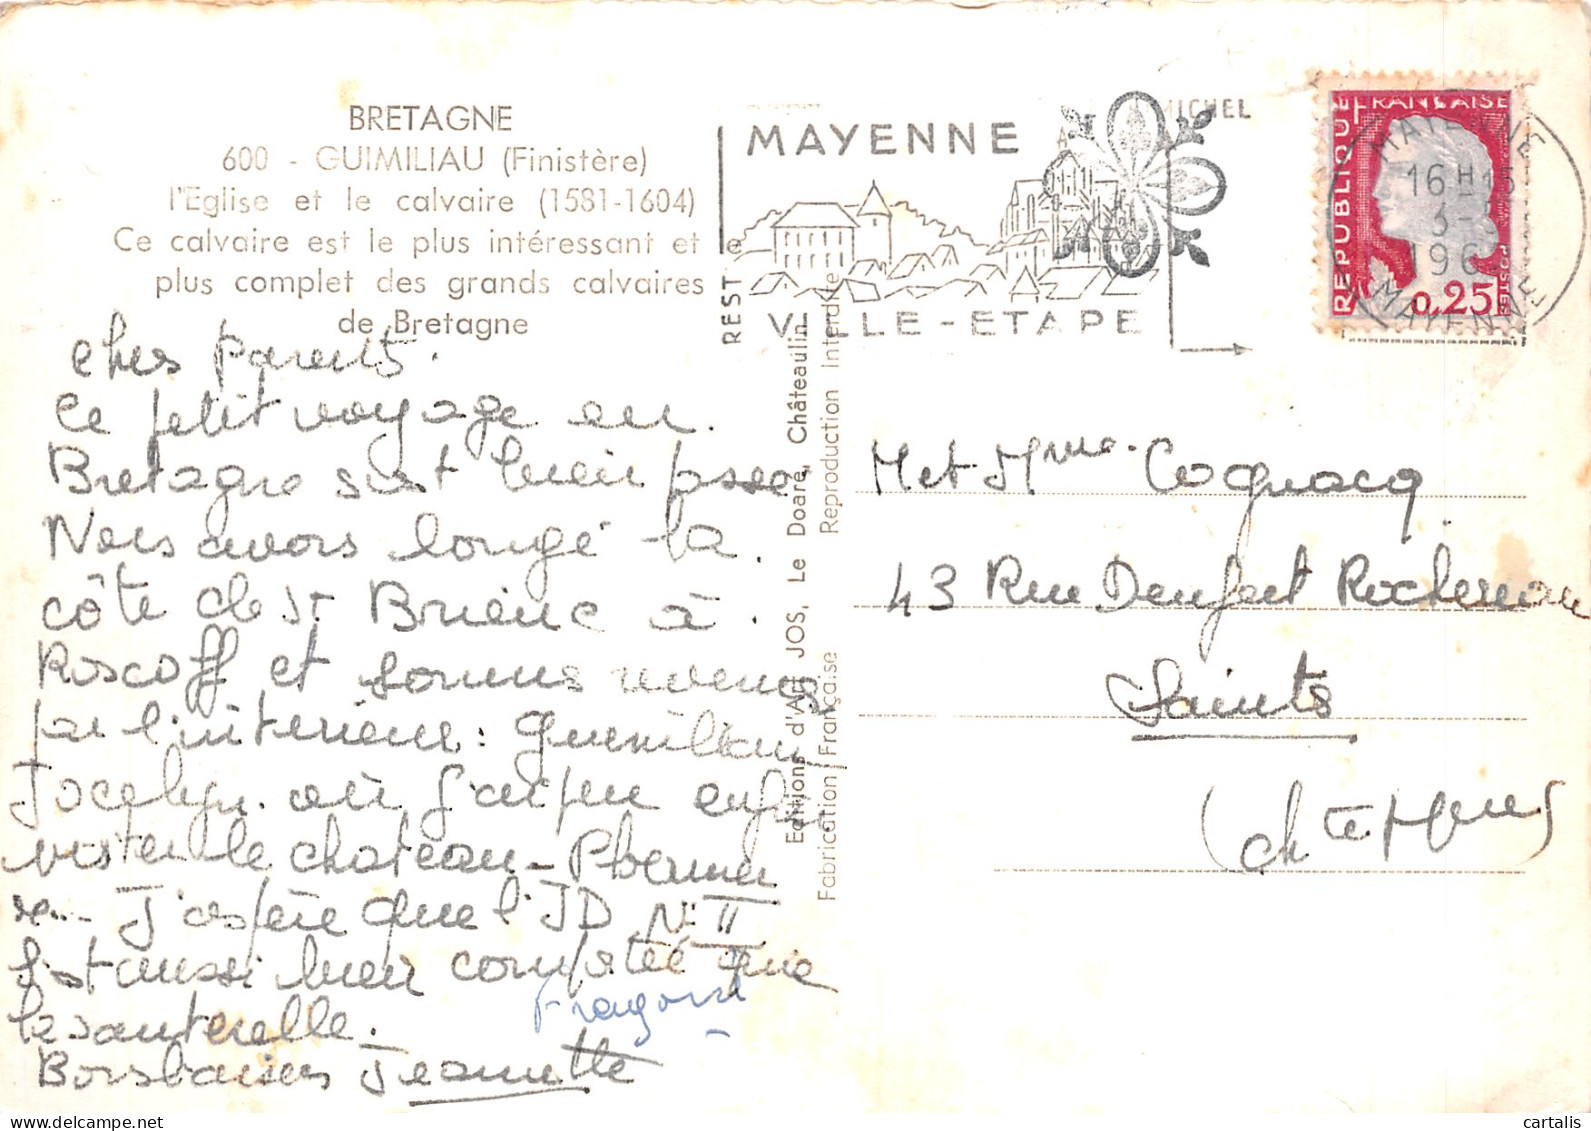 BRETAGNE
600 - GUIMILIAU (Finistère)
l'Eglise et le calvaire (1581-1604)
Ce calvaire est le plus intéressant et le
plus complet des grands calvaires
de Bretagne
Chers parents.
Ce petit voyage en
Bretagne s'est bien passé
Nous avons longé la
côte de St Brieuc à
Roscoff et sommes revenus
par l'interieur : Guimiliau
Jocelyn où j'ai pu enfin
visiter le chateau - Ploermel
J'espère que l'ID N° II
s'est aussi bien comporté que
la sauterelle.
Bons baisers Jeannette
Editions d'Art JOS, Le Doaré, Châteaulin
Fabrication Française Reproduction Interdite
MICHEL
MAYENNE
VILLE-ETAPE
REST
REPUBLIQUE FRANÇAISE
0,25
POSTES
MAYENNE
16H15
3-
196
MAYENNE
M et Mme Cognacq
43 Rue Denfert Rochereau
Saintes
(Chte Mme)
cartalis